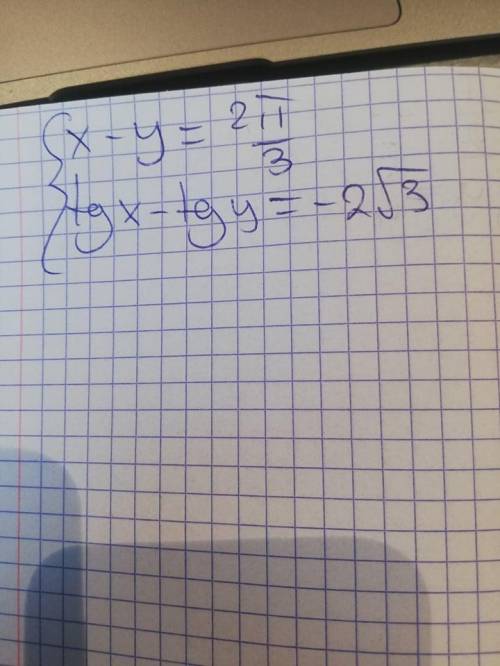 x - y = 2π/3
tg x - tg y = -2√3